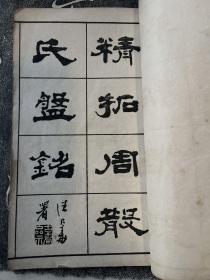 精拓周散
氏盤銘
署